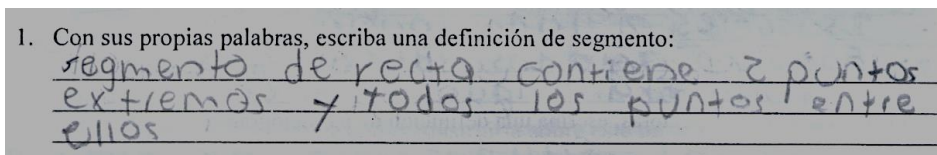 1. Con sus propias palabras, escriba una definición de segmento:
segmento de recta contiene 2 puntos
extremos y todos los puntos entre
ellos